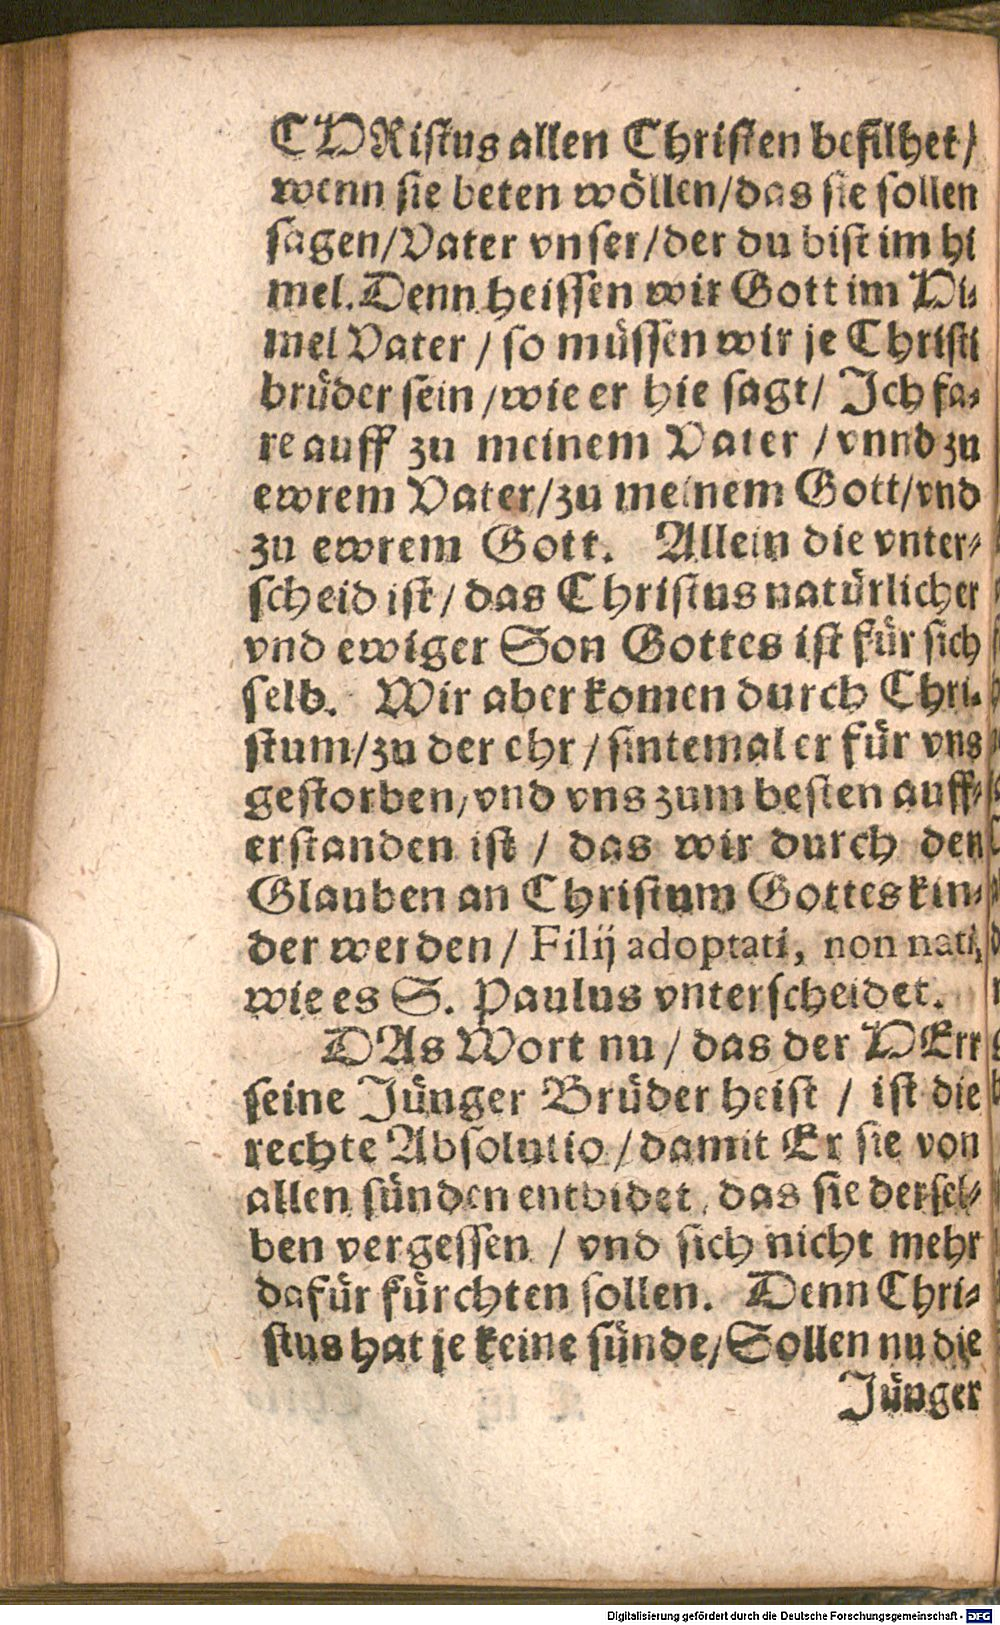 CHRistus allen Christen befilhet/
wenn sie beten wöllen/das sie sollen
sagen/Vater vnser/der du bist im hi
mel. Denn heissen wir Gott im Hi-
mel Vater / so müssen wir je Christi
brüder sein /wie er hie sagt/ Ich fa-
re auff zu meinem Vater / vnnd zu
ewrem Vater/zu meinem Gott/vnd
zu ewrem Gott. Allein die vnter-
scheid ist / das Christus natürlicher
vnd ewiger Son Gottes ist für sich
selb. Wir aber komen durch Chri-
stum/zu der ehr / sintemal er für vns
gestorben/vnd vns zum besten auff-
erstanden ist / das wir durch den
Glauben an Christum Gottes kin-
der werden / Filij adoptati, non nati,
wie es S. Paulus vnterscheidet.
DAs Wort nu / das der HErr
seine Jünger Brüder heist / ist die
rechte Absolutio / damit Er sie von
allen sünden entbidet, das sie dersel-
ben vergessen / vnd sich nicht mehr
dafür fürchten sollen. Denn Chri-
stus hat je keine sünde/Sollen nu die
Jünger
Digitalisierung gefördert durch die Deutsche Forschungsgemeinschaft - DFG